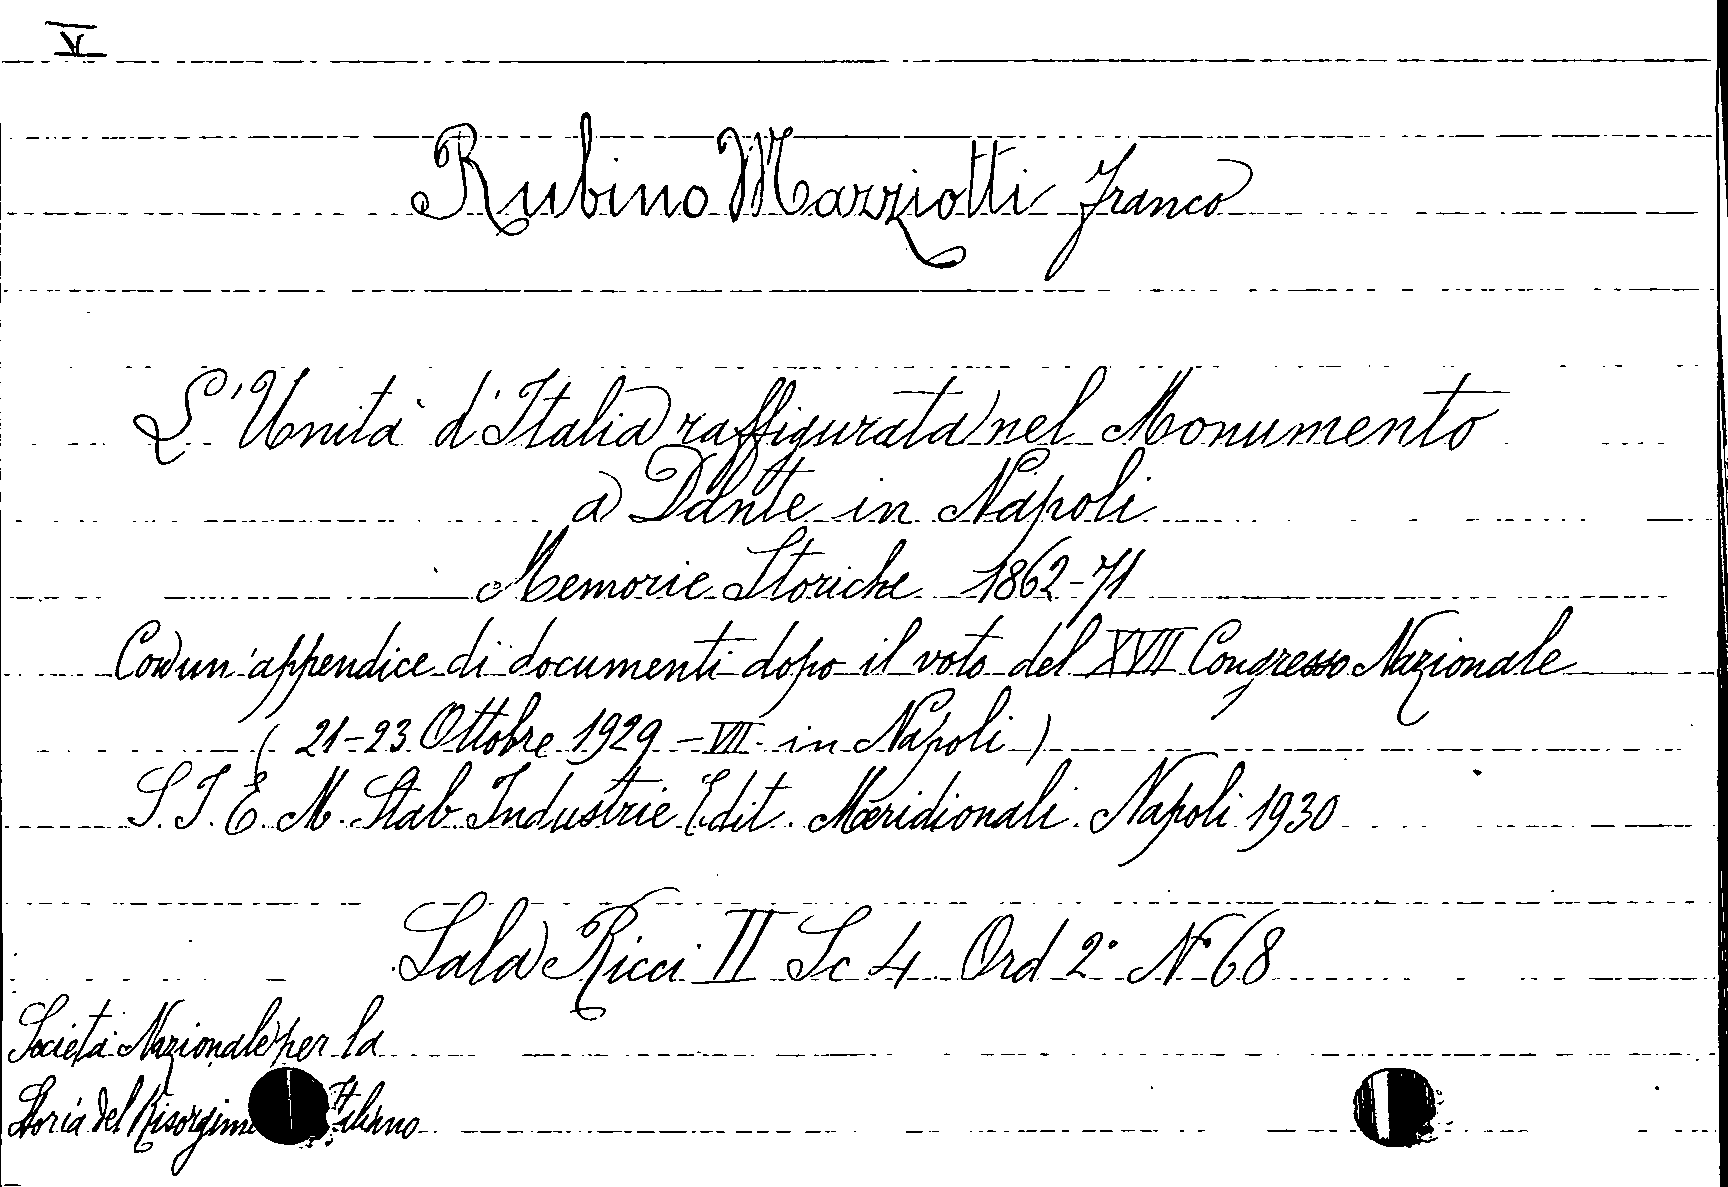 VI
Rubino Mazziotti Franco
L'Unità d'Italia raffigurata nel Monumento
a Dante in Napoli
Memorie Storiche 1862-71
Con un'appendice di documenti dopo il voto del XVII Congresso Nazionale
( 21-23 Ottobre 1929 - VII - in Napoli )
S. I. E. M. Stab Industrie Edit. Meridionali. Napoli 1930
Sala Ricci II Sc 4 Ord 2° N° 68
Società Nazionale per la
Storia del Risorgim Italiano